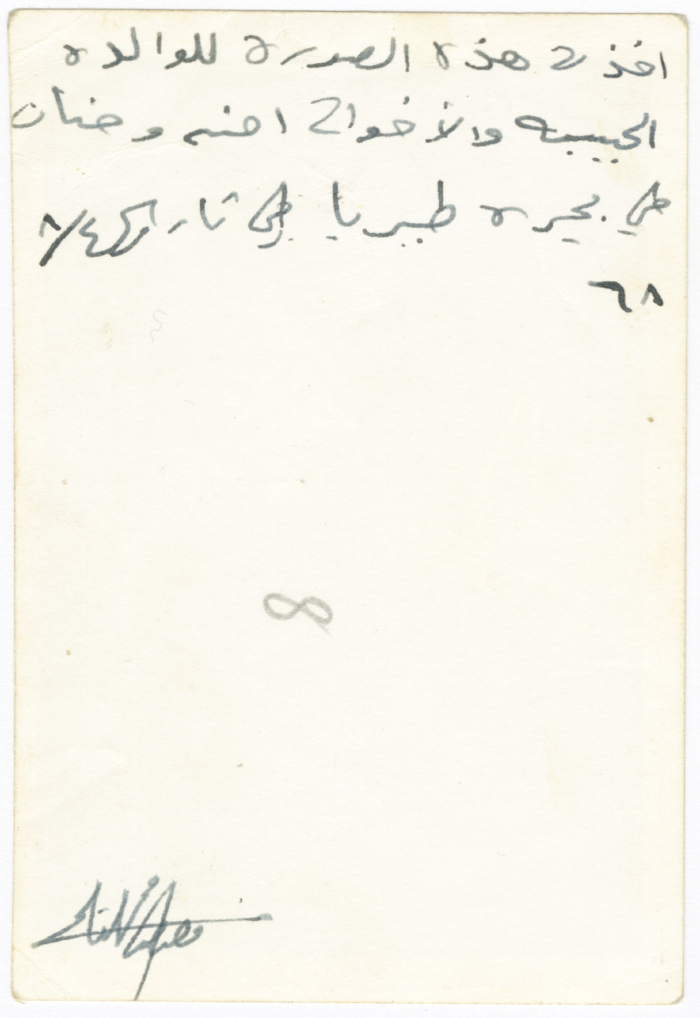 اخذت هذه الصورة للوالده
الحبيبه والأخوات امنه وحنان
في بحيرة طبريا في تاريخ ٨/٤
٦٨
8